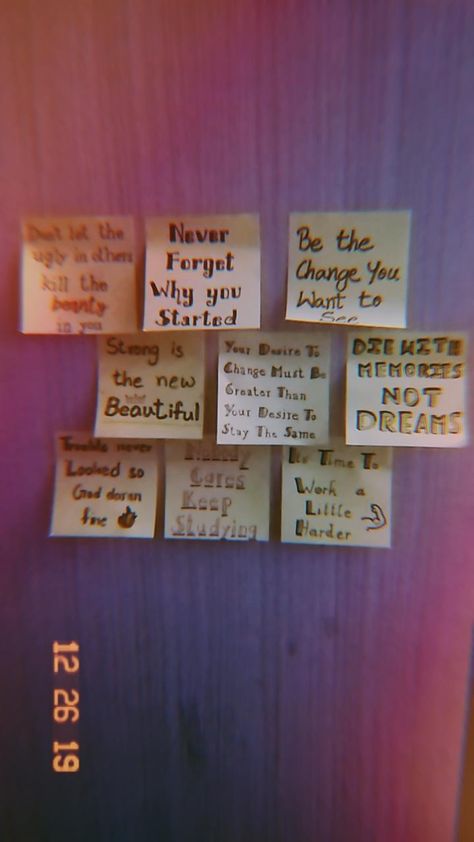 Don't let the
ugly in others
kill the
beauty
in you
Never
Forget
Why you
Started
Be the
Change You
Want to
See
Strong is
the new
Beautiful
Your Desire To
Change Must Be
Greater Than
Your Desire To
Stay The Same
DIE WITH
MEMORIES
NOT
DREAMS
Trouble never
Looked so
God
fine
Nobody
Cares
Keep
Studying
It's Time To
Work a
Little
Harder
12 26 19